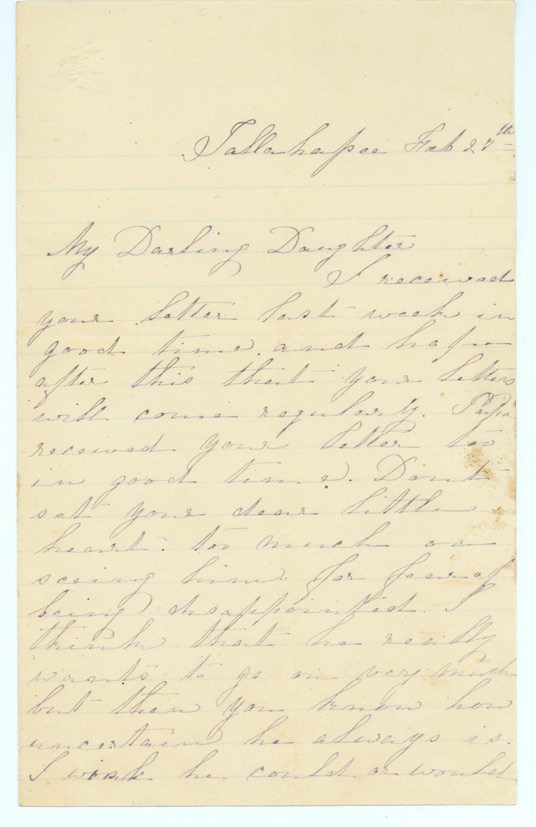 Tallahapoe Feb 27th
My Darling Daughter
I received
your letter last week in
good time. and hope
after this that your letters
will come regularly. Papa
received your letter too
in good time. Dont
set your dear little
heart. too much on
seeing him. for fear of
being disappointed. I
think that he really
wants to go on very much
but then you know how
uncertain he always is.
I wish he could or would